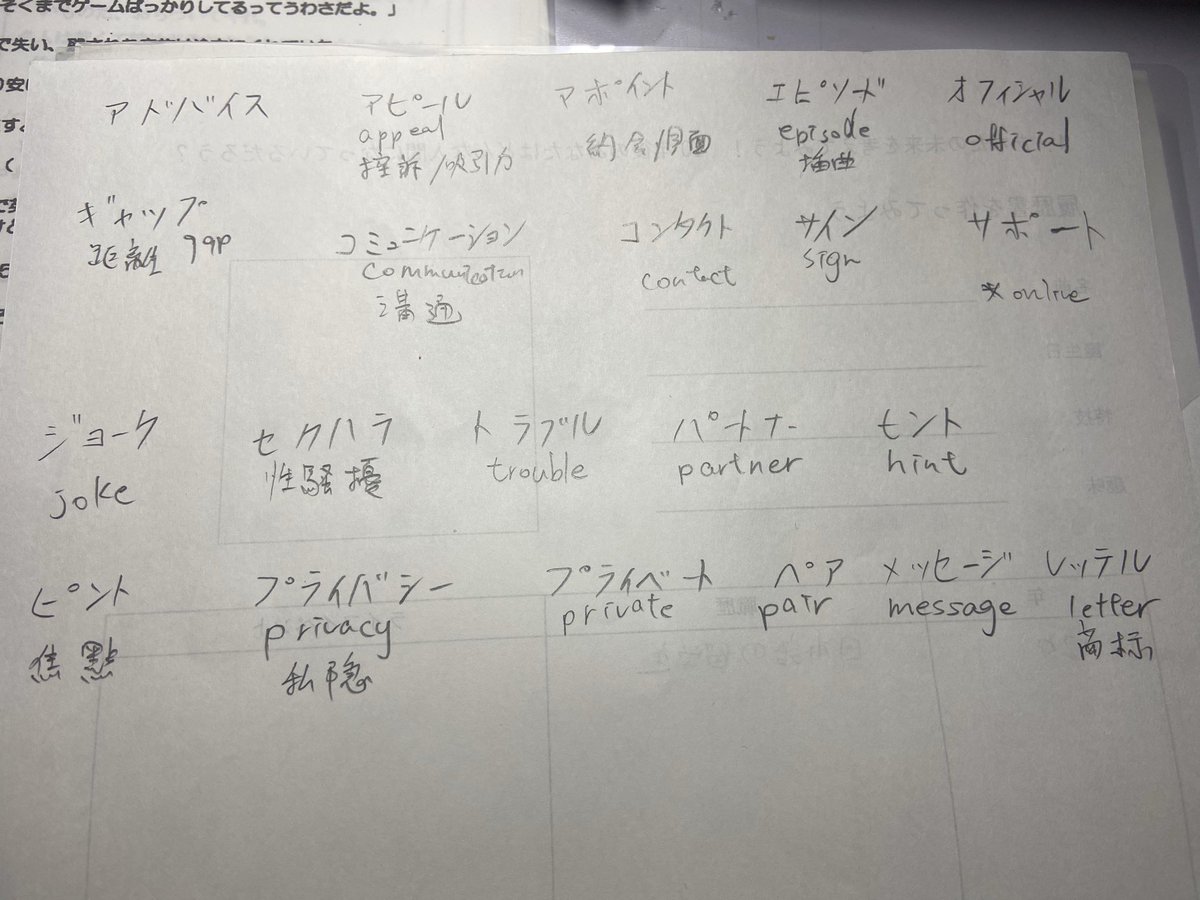 そくまでゲームばっかりしてるってうわさだよ。」
で失い、
アドバイス アピール アポイント エピソード オフィシャル
appeal 約会/見面 episode official
控訴/吸引力 插曲
ギャップ コミュニケーション コンタクト サイン サポート
距離 gap communication contact sign *online
溝通
ジョーク セクハラ トラブル パートナー ヒント
joke 性騷擾 trouble partner hint
ピント プライバシー プライベート ペア メッセージ レッテル
焦點 privacy private pair message letter
私隐 商标